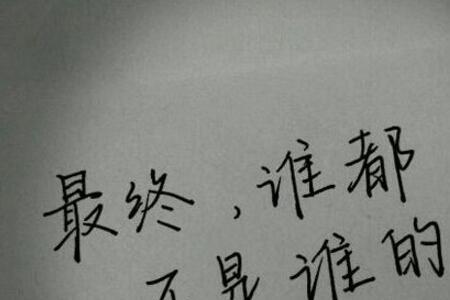 最终，谁都
不是谁的